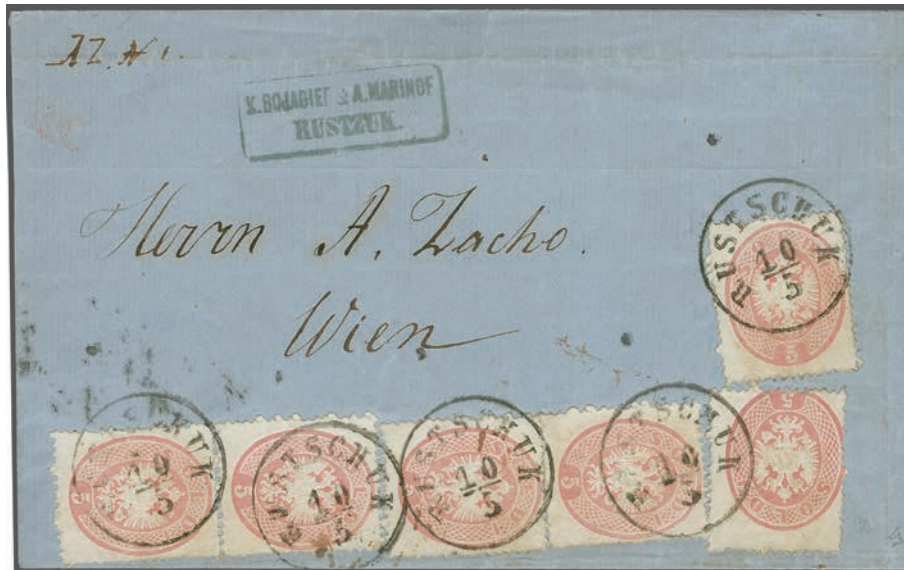 K. BOJAGIEF & A. MARINOF
RUSTZUK.
Herrn A. Zacho.
Wien
RUSTSCHUK
10
5
5
5
RUSTSCHUK
10
5
5
RUSTSCHUK
10
5
RUSTSCHUK
10
5
5
RUSTSCHUK
10
5
5